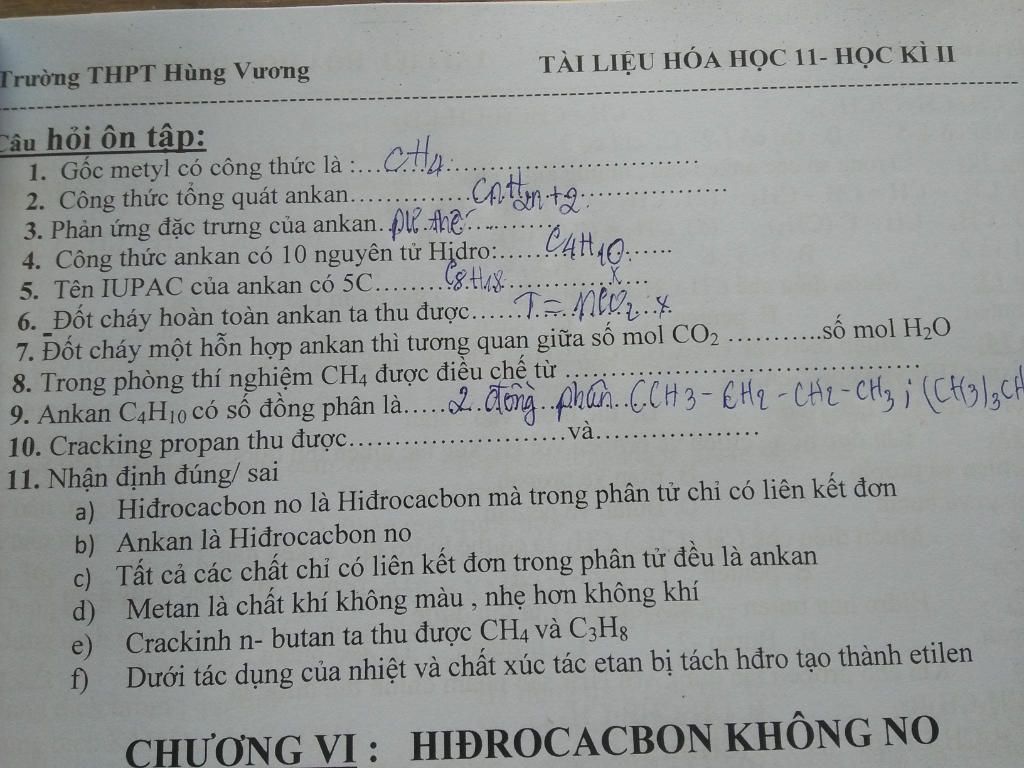 Trường THPT Hùng Vương TÀI LIỆU HÓA HỌC 11- HỌC KÌ II
Câu hỏi ôn tập:
1. Gốc metyl có công thức là :....CH4.................................
2. Công thức tổng quát ankan..............CnH2n+2....................
3. Phản ứng đặc trưng của ankan. pư thế ............
4. Công thức ankan có 10 nguyên tử Hidro:......C4H10......
5. Tên IUPAC của ankan có 5C.........C8H18..............x.....
6. Đốt cháy hoàn toàn ankan ta thu được......T = nCO2..x
7. Đốt cháy một hỗn hợp ankan thì tương quan giữa số mol CO2 ...........số mol H2O
8. Trong phòng thí nghiệm CH4 được điều chế từ ............................................
9. Ankan C4H10 có số đồng phân là......2 đồng phân CCH3-CH2-CH2-CH3 ; (CH3)3CH
10. Cracking propan thu được...........................và....................
11. Nhận định đúng/ sai
a) Hiđrocacbon no là Hiđrocacbon mà trong phân tử chỉ có liên kết đơn
b) Ankan là Hiđrocacbon no
c) Tất cả các chất chỉ có liên kết đơn trong phân tử đều là ankan
d) Metan là chất khí không màu , nhẹ hơn không khí
e) Crackinh n- butan ta thu được CH4 và C3H8
f) Dưới tác dụng của nhiệt và chất xúc tác etan bị tách hđro tạo thành etilen
CHƯƠNG VI : HIĐROCACBON KHÔNG NO